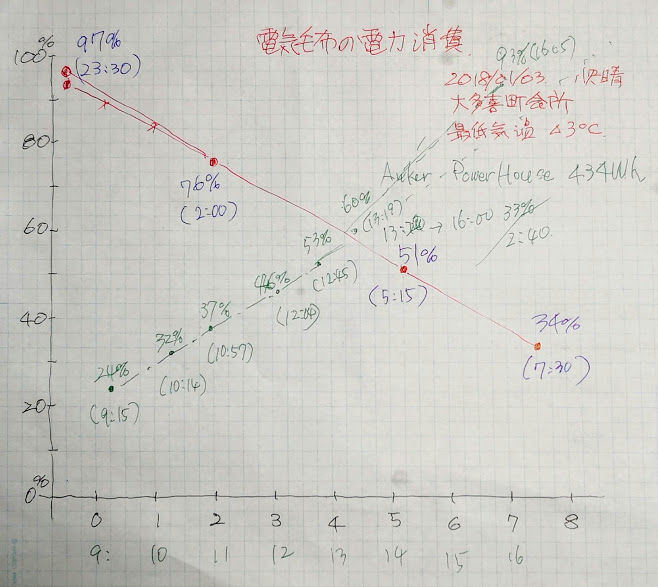 電気毛布の電力消費
93%(16:05)
2018/01/03 快晴
大多喜町会所
最低気温 △3℃
Anker PowerHouse 434Wh
%
100
80
60
40
20
0%
97%
(23:30)
76%
(2:00)
51%
(5:15)
34%
(7:30)
24%
(9:15)
32%
(10:14)
37%
(10:57)
46%
(12:04)
53%
(12:45)
60%
(13:19)
→ 16:00
33%
2:40
0 1 2 3 4 5 6 7 8
9: 10 11 12 13 14 15 16